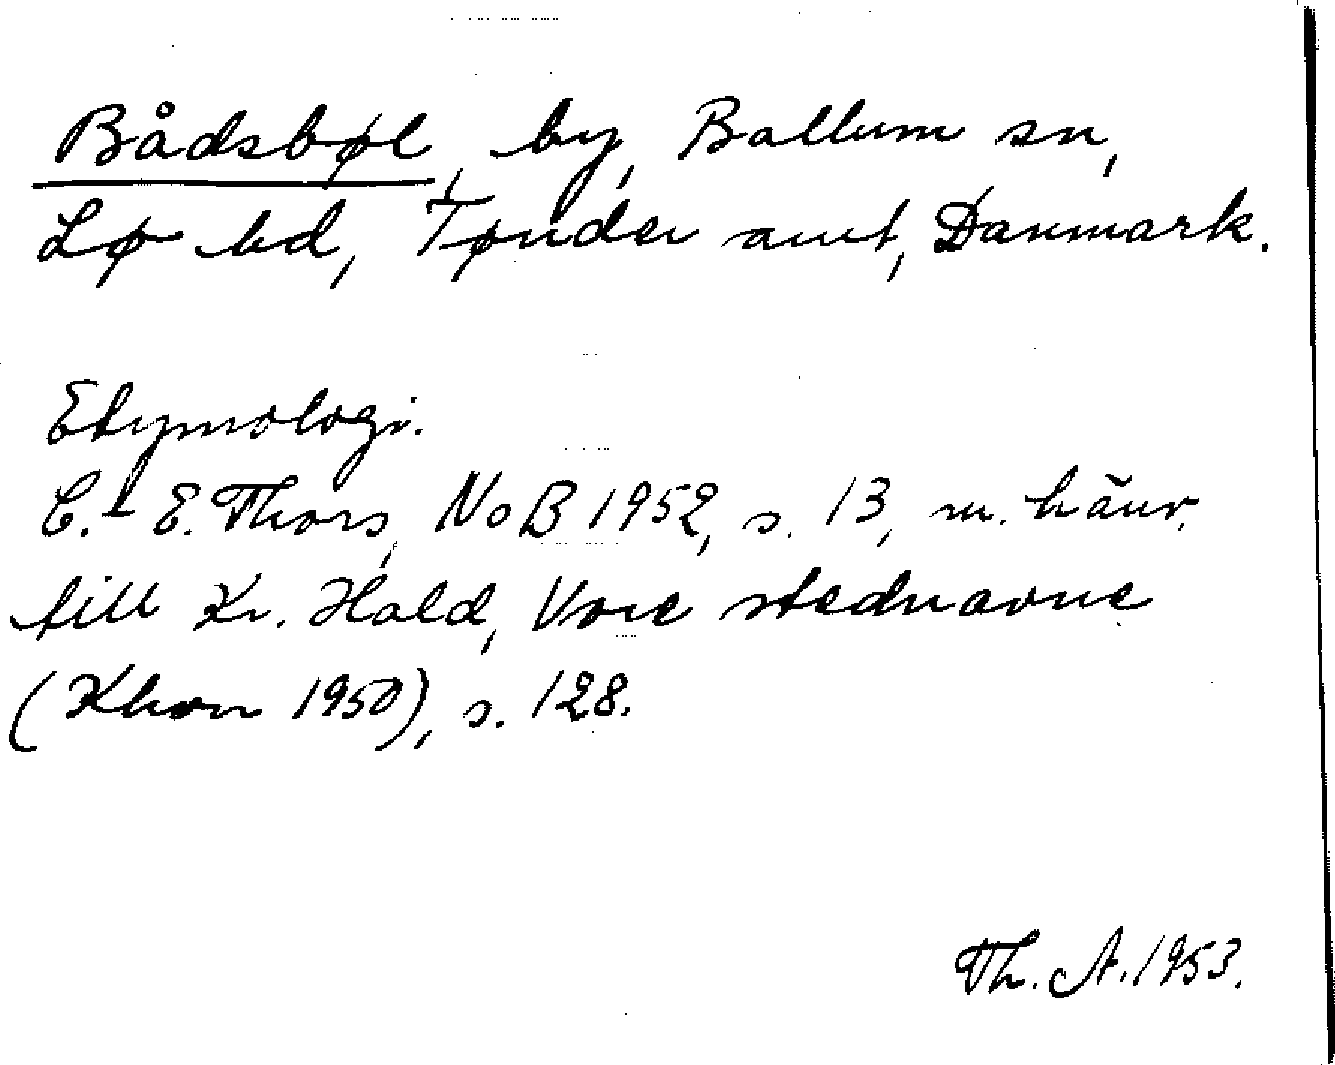 Bådsbøl, by, Ballum sn,
Lø hd, Tønder amt, Danmark.
Etymologi.
C.-E. Thors, NoB 1952, s. 13, m. hänv.
till Kr. Hald, Vore stednavne
(Khvn 1950), s. 128.
Th. A. 1953.